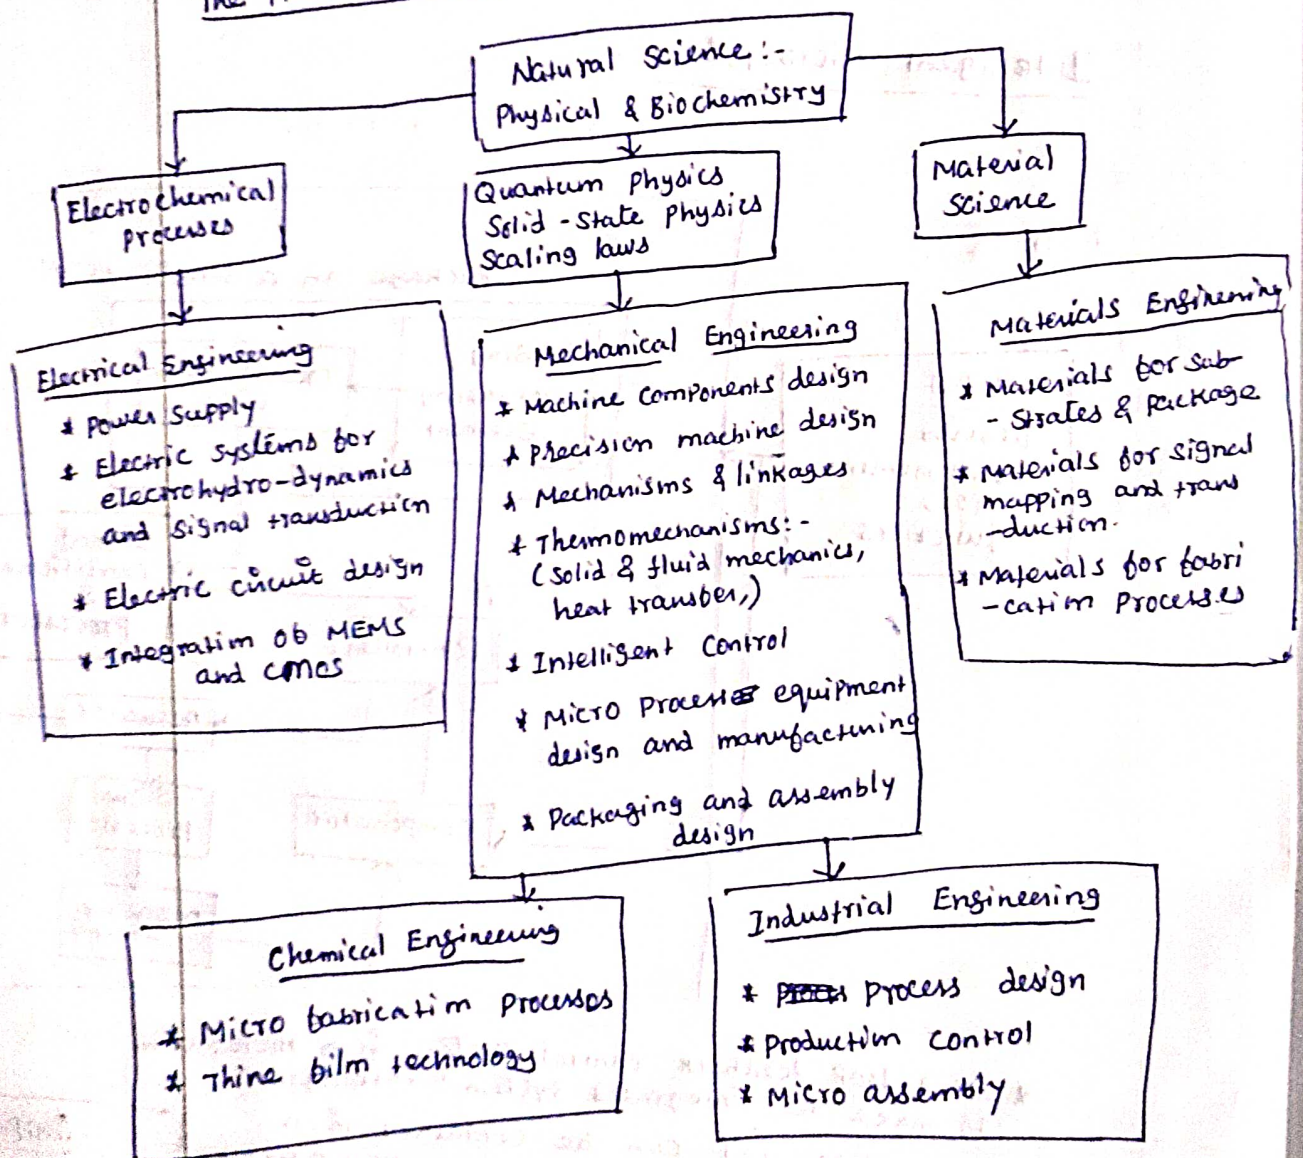 The
Natural Science:-
Physical & Biochemistry
Electrochemical
Processes
Quantum Physics
Solid-State Physics
Scaling laws
Material
Science
Electrical Engineering
* Power Supply
* Electric Systems for
electrohydro-dynamics
and Signal transduction
* Electric circuit design
* Integration of MEMS
and CMOS
Mechanical Engineering
* Machine Components design
* Precision machine design
* Mechanisms & linkages
* Thermomechanisms:-
(Solid & fluid mechanics,
heat transfer,)
* Intelligent Control
* Micro Process equipment
design and manufacturing
* Packaging and assembly
design
Materials Engineering
* Materials for Sub
- Strates & Package
* Materials for Signal
mapping and trans
-duction.
* Materials for fabri
-cation Processes
Chemical Engineering
* Micro fabrication Processes
* Thine film technology
Industrial Engineering
* Process design
* Production Control
* Micro assembly